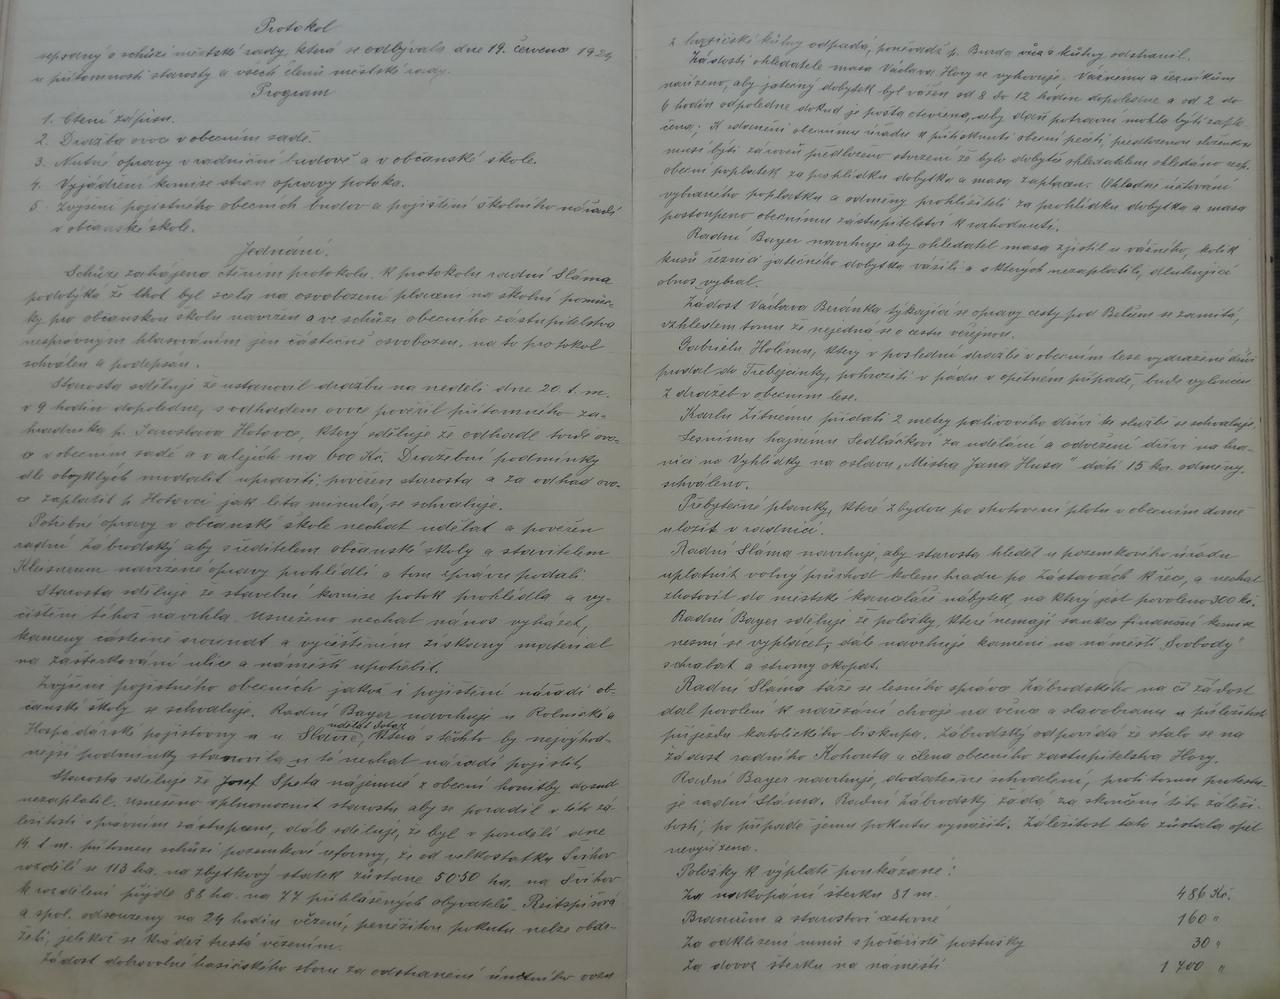 Protokol
sepsaný o schůzi městské rady, která se odbývala dne 19. července 1924
u přítomnosti starosty a všech členů městské rady.
Program
1. Čtení zápisu.
2. Dražba ovoce v obecním sadě.
3. Nutné opravy v radniční budově a v občanské škole.
4. Vyjádření komise stran opravy potoka.
5. Zvýšení pojistného obecních budov a pojištění školního nářadí
v občanské škole.
Jednání.
Schůze zahájena čtením protokolu. K protokolu radní Sláma
podotýká že Lhot byl zcela na osvobození placení na školní pomůc-
ky pro občanskou školu navržen a ve schůzi obecního zastupitelstva
nesprávným hlasováním jen částečně osvobozen, na to protokol
schválen a podepsán.
Starosta sděluje že ustanovil dražbu na neděli dne 20. t. m.
v 9 hodin dopoledne, s odhadem ovoce pověřil přítomného za-
hradníka p. Jaroslava Hotovce, který sděluje že odhadl tvrdé ovo-
ce v obecním sadě a v alejích na 600 Kč. Dražební podmínky
dle obvyklých modalit upraviti, pověřen starosta a za odhad ovo-
ce zaplatit p. Hotovci jak léta minulá, se schvaluje.
Potřebné opravy v občanské škole nechat udělat a pověřen
radní Zábrodský aby s ředitelem občanské školy a stavitelem
Klusverem navržené opravy prohlédli a tom zprávu podali.
Starosta sděluje že stavební komise potok prohlédla a vy-
čištění téhož navrhla. Usnešeno nechat nános vyházet,
kameny částečně srovnat a vyčištěním získaný materiál
na zaštěrkování ulice a náměstí upotřebit.
Zvýšení pojistného obecních jakož i pojištění nářadí ob-
čanské školy se schvaluje. Radní Bayer navrhuje u Rolnické a
udělat dotaz
Hospodářské pojistovny a u Slavie, která z těchto by nejvýhod-
nější podmínky stanovila u té nechat nářadí pojistit.
Starosta sděluje že Josef Špeta nájemné z obecní honitby dosud
nezaplatil. Usnešeno splnomocnit starostu aby se poradil v této zá-
ležitosti s právním zástupcem, dále sděluje, že byl v pondělí dne
14. t. m. přítomen schůzi pozemkové reformy, že od velkostatku Švihov
rozdělí se 113 ha. na zbytkový statek zůstane 50·50 ha, na Švihov
k rozdělení přijde 88 ha. na 77 přihlášených obyvatelů. Reitspísová
a spol. odsouzeny na 24 hodin vězení, peněžitou pokutu nelze obdr-
želi, jelikož se krádež trestá vězením.
Žádost dobrovolné hasičského sboru za odstranění
z hasičské kůlny odpadá, poněvadž p. Burda vůz z kůlny odstranil.
Žádosti ohledatele masa Václava Hory se vyhovuje. Vážnému a řezníkům
nařízeno, aby jateční dobytek byl vážen od 8 do 12 hodin dopoledne a od 2 do
6 hodin odpoledne dokud je pošta otevřena, aby daň potravní mohla býti zapla-
cena; K obecnímu úřadu k přitisknutí obecní pečeti, předloženou
musí býti zároveň předloženo stvrzení že bylo dobytče ohledatelem ohledáno resp.
obecní poplatek za prohlídku dobytka a masa zaplacen. Ohledně účtování
vybraného poplatku a odměny prohlížiteli za prohlídku dobytka a masa
postoupeno obecnímu zastupitelství k rozhodnutí.
Radní Bayer navrhuje aby ohledatel masa zjistil u vážného, kolik
kusů řezníci jatečného dobytka vážili a z kterých nezaplatili, dlužnící
obnos vybral.
Žádost Václava Beránka týkající se opravy cesty pod Bělčem se zamítá,
vzhledem tomu že nejedná se o cestu veřejnou.
Gabrielu Holému, který v poslední dražbě v obecním lese vydražené dříví
prodal do Třebejčinky, pohroziti v pádu v opětném případě, bude vyloučen
z dražeb v obecním lese.
Karlu Žitnému přidati 2 metry palivového dříví ke službě se schvaluje.
Lesnímu hajnému Sedláčkovi za udělání a odvežení dříví na hra-
nici na Vyhlídky na oslavu „Mistra Jana Husa" dáti 15 kor. odměny,
schváleno.
Přebytečné plaňky, které zbydou po zhotovení plotu v obecním domě
uložit v radnici.
Radní Sláma navrhuje, aby starosta hleděl u pozemkového úřadu
uplatnit volný průchod kolem hradu po zástavách k řece, a nechat
zhotovit do městské kanceláře nábytek, na který jest povoleno 300 Kč.
Radní Bayer sděluje že položky, které nemají sankce finanční komise
nesmí se vyplácet, dále navrhuje kamení na náměstí „Svobody"
schrabat a stromy okopat.
Radní Sláma táže se lesního správce Zábrodského na čí žádost
dal povolení k nařezání chvoje na věnce a slavobranu u příležitosti
příjezdu katolického biskupa. Zábrodský odpovídá že stalo se na
žádost radního Kohouta a člena obecního zastupitelstva Hory.
Radní Bayer navrhuje, dodatečné schválení, proti tomu protestu-
je radní Sláma. Radní Zábrodský žádá za skončení této záleži-
tosti, po případě jemu pokutu vyměřiti. Záležitost tato zůstala opět
nevyřízena.
Položky k výplatě poukázané:
Za nakopání štěrku 81 m. 486 Kč.
Branným a starostovi cestovné 160 „
Za odklizení rumů s pořádiště postruhy 30 „
Za dovoz štěrku na náměstí 1 700 „